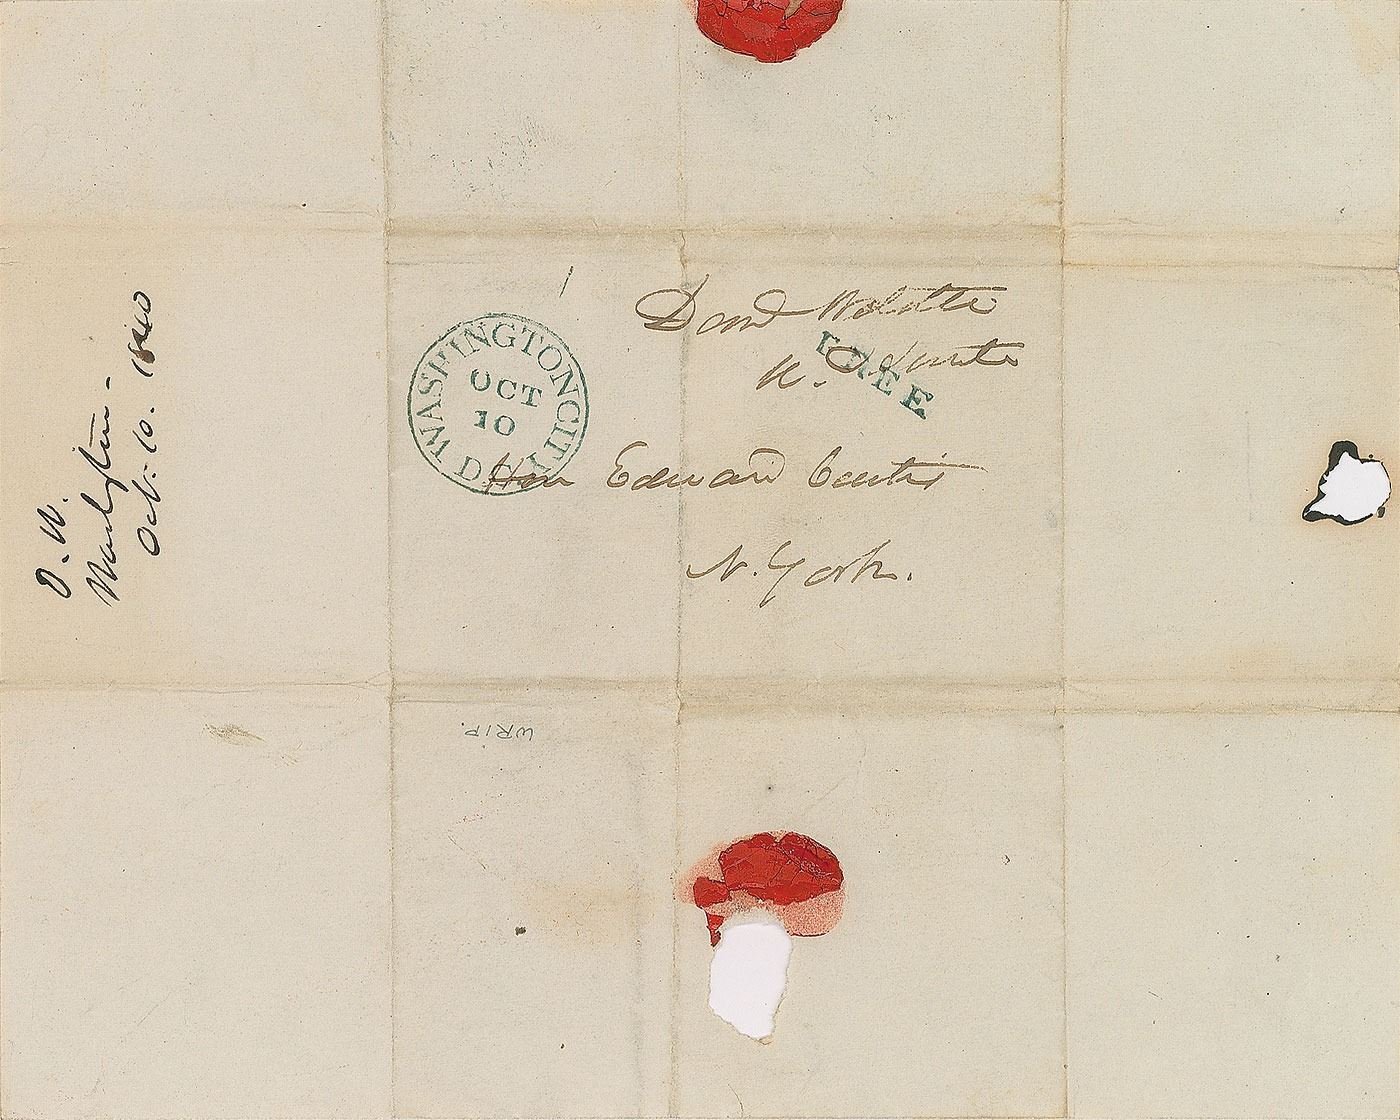 D. W.
Washington -
Oct. 10. 1840
WASHINGTON CITY D.C.
OCT
10
FREE
Danl Webster
U.S. Senate
Hon Edward Curtis
N. York.
WRIP.